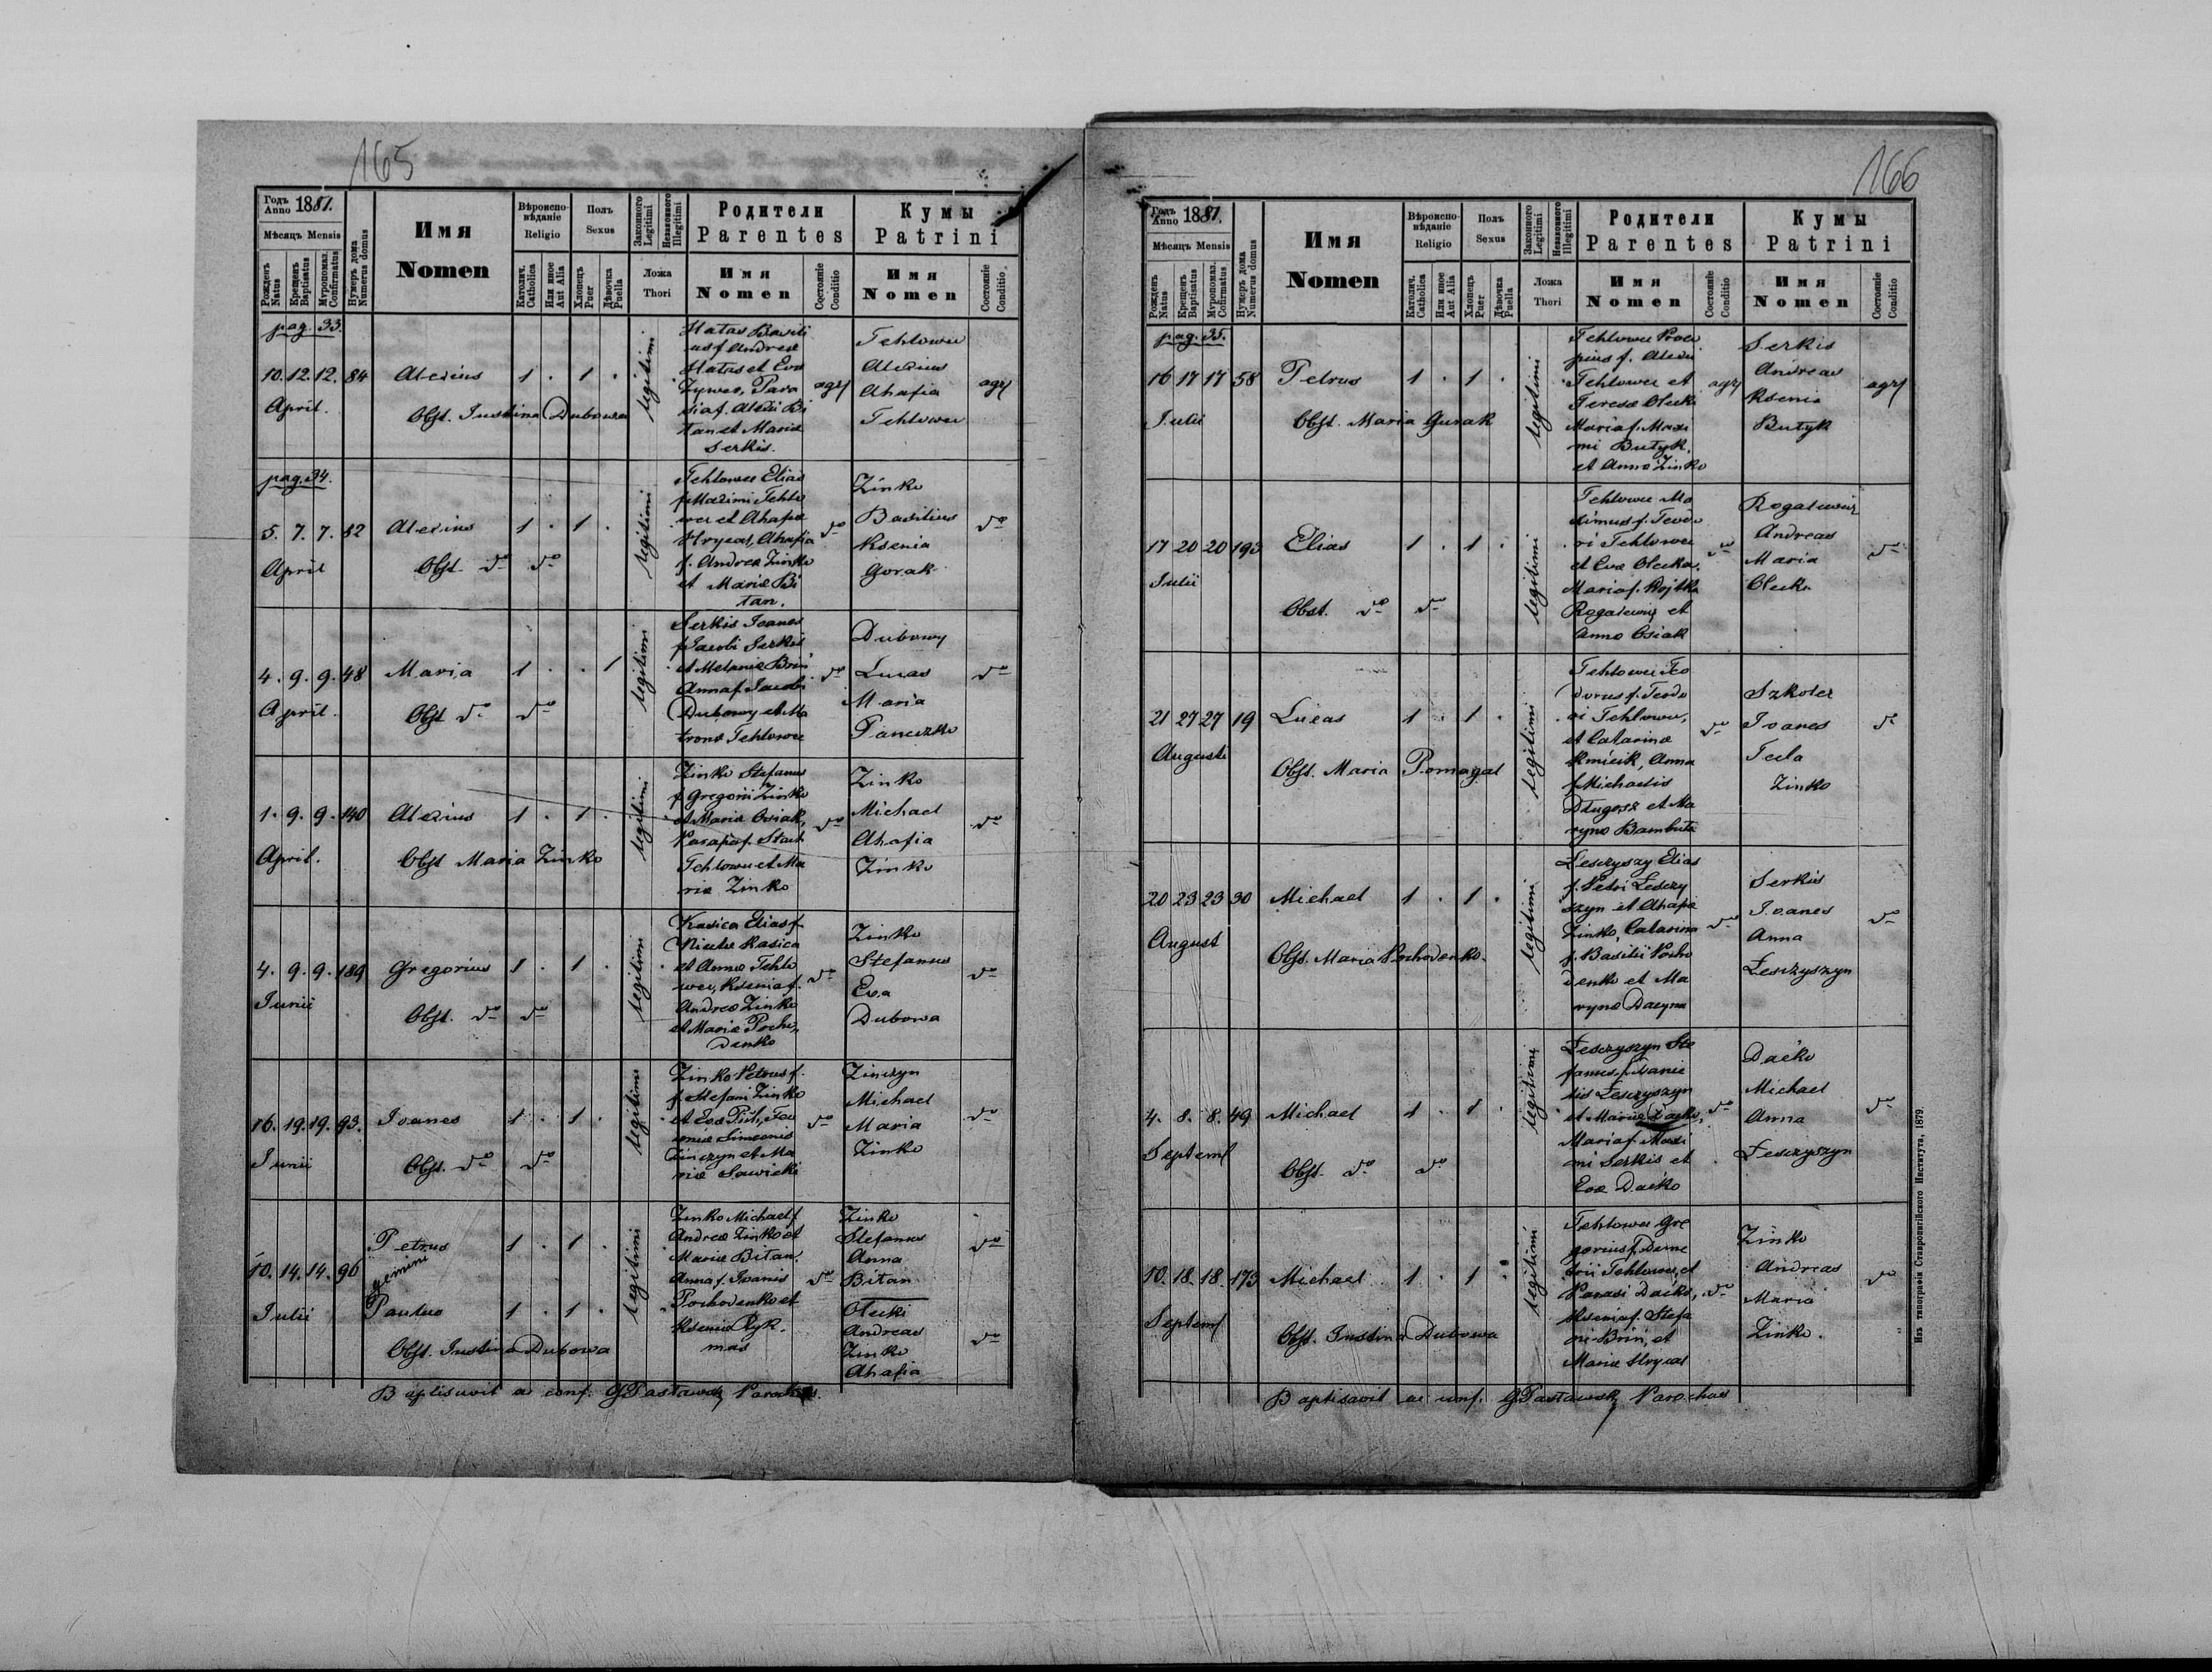 165
Годъ Anno 1881.
Мѣсяцъ Mensis
Рожденъ Natus
Крещенъ Baptisatus
Мѵропомаз. Confirmatus
Нумеръ дома Numerus domus
Имя
Nomen
Вѣроисповѣданіе
Religio
Католич. Catholica
Или иное Aut Alia
Полъ
Sexus
Хлопецъ Puer
Дѣвочка Puella
Законного Legitimi
Незаконного Illegitimi
Ложа
Thori
Родители
Parentes
Имя
Nomen
Состояніе Conditio
Кумы
Patrini
Имя
Nomen
Состояніе Conditio
pag. 33.
10. 12. 12. 84 Alexius 1 . 1 .
April.
Obst. Justina Dubowa
legitimi
Hatas Basili
us f. Andreæ
Hatas et Eva
Zywer, Para
f. Alexii Bi
tan et Maria
Serkis.
agr
Tehlowec
Alexius
Ahafia
Tehlowec
agr
pag. 34.
5. 7. 7. 82 Alexius 1 . 1 .
April
Obst. do do
legitimi
Tehlowec Elias
f. Maximi Tehlo
wec et Ahafia
Hrycaj, Ahafia
f. Andreæ Zinko
et Mariæ Bi
tan.
do
Zinko
Basilius
Ksenia
Gorak
do
4. 9. 9. 48 Maria 1 . . 1
April
Obst do do
legitimi
Serkis Joanes
f. Jacobi Serkis
et Melaniæ Brin
Anna f. Jacobi
Dubowy et Ma
tronæ Tehlowec
do
Dubowy
Lucas
Maria
Panczko
do
1. 9. 9. 140 Alexius 1 . 1 .
April.
Obst Maria Zinko
legitimi
Zinko Stefanus
f. Gregorii Zinko
et Mariæ Osiak,
Tehlowec et Ma
riæ Zinko
do
Zinko
Michael
Ahafia
Zinko
do
4. 9. 9. 189 Gregorius 1 . 1 .
Junii
Obst. do do
legitimi
Kasica Elias f.
Nicetæ Kasica
et Annæ Tehlo
wec, Ksenia f.
Andreæ Zinko
et Mariæ Pocho
denko
do
Zinko
Stefanus
Eva
Dubowa
do
16. 19. 19. 93. Joanes 1 . 1 .
Junii
Obst. do do
legitimi
Zinko Petrus f.
f. Stefani Zinko
Simeonis
Zinczyn et Ma
riæ Sawicki
do
Zinczyn
Michael
Maria
Zinko
do
10. 14. 14. 96 Petrus 1 . 1 .
gemini
Julii Paulus 1 . 1 .
Obst. Justina Dubowa
legitimi
Zinko Michael f.
Andreæ Zinko et
Mariæ Bitan.
Anna f. Joanis
Pochodenko et
Ksenia Ryk
mas
do
Zinko
Stefanus
Anna
Bitan
do
Olecki
Andreas
Zinko
Ahafia
do
Baptisavit ac conf. G Pasławsky Parochus.
166
Годъ Anno 1881.
Мѣсяцъ Mensis
Рожденъ Natus
Крещенъ Baptisatus
Мѵропомаз. Cofirmatus
Нумеръ дома Numerus domus
Имя
Nomen
Вѣроисповѣданіе
Religio
Католич. Catholica
Или иное Aut Alia
Полъ
Sexus
Хлопецъ Puer
Дѣвочка Puella
Законного Legitimi
Незаконного Illegitimi
Ложа
Thori
Родители
Parentes
Имя
Nomen
Состояніе Conditio
Кумы
Patrini
Имя
Nomen
Состояніе Conditio
pag. 35.
16 17 17 58 Petrus 1 . 1 .
Julii
Obst. Maria Gurak
legitimi
Tehlowec Proco
pius f. Alexii
Tehlowec et
Teresæ Olecki
Maria f. Maxi
mi Butyk,
et Anna Zinko
agr
Serkis
Andreas
Ksenia
Butyk
agr
17 20 20 193 Elias 1 . 1 .
Julii
Obst. do do
legitimi
Tehlowec Ma
ximus f. Teodo
ri Tehlowec
et Evæ Olecka.
Maria f. Wojtka
Rogalewicz et
Anna Osiak
do
Rogalewicz
Andreas
Maria
Olecka
do
21 27 27 19 Lucas 1 . 1 .
Augusti
Obst. Maria Pomagal
legitimi
Tehlowec Teo
dorus f. Teodo
ri Tehlowec,
et Catarinæ
Kmicik, Anna
f. Michaelis
Długosz et Ma
rynæ Bambula
do
Szkoler
Joanes
Tecla
Zinko
do
20 23 23 30 Michael 1 . 1 .
August
Obst. Maria Pochodenko.
legitimi
Leszczyszy Elias
f. Petri Leszczy
szyn et Ahafiæ
Zinko, Catarina
f. Basilii Pocho
denko et Ma
rynæ Dacyna
do
Serkis
Joanes
Anna
Leszczyszyn
do
4. 8. 8. 49 Michael 1 . 1 .
Septemb
Obst. do do
legitimi
Leszczyszyn Ste
fanus f. Danie
lis Leszczyszyn
et Mariæ Dacko,
Maria f. Maxi
mi Serkis et
Evæ Dacko
do
Dacko
Michael
Anna
Leszczyszyn
do
10. 18. 18. 173 Michael 1 . 1 .
Septemb
Obst. Justina Dubowa
legitimi
Tehlowec Gre
gorius f. Deme
trii Tehlowec, et
Parasi Dacko,
Ksenia f. Stefa
ni Brin, et
Mariæ Hrycaj
do
Zinko
Andreas
Maria
Zinko.
do
Baptisavit ac conf. G Pasławsky Parochus
Изъ типографіи Ставропигійского Института, 1879.